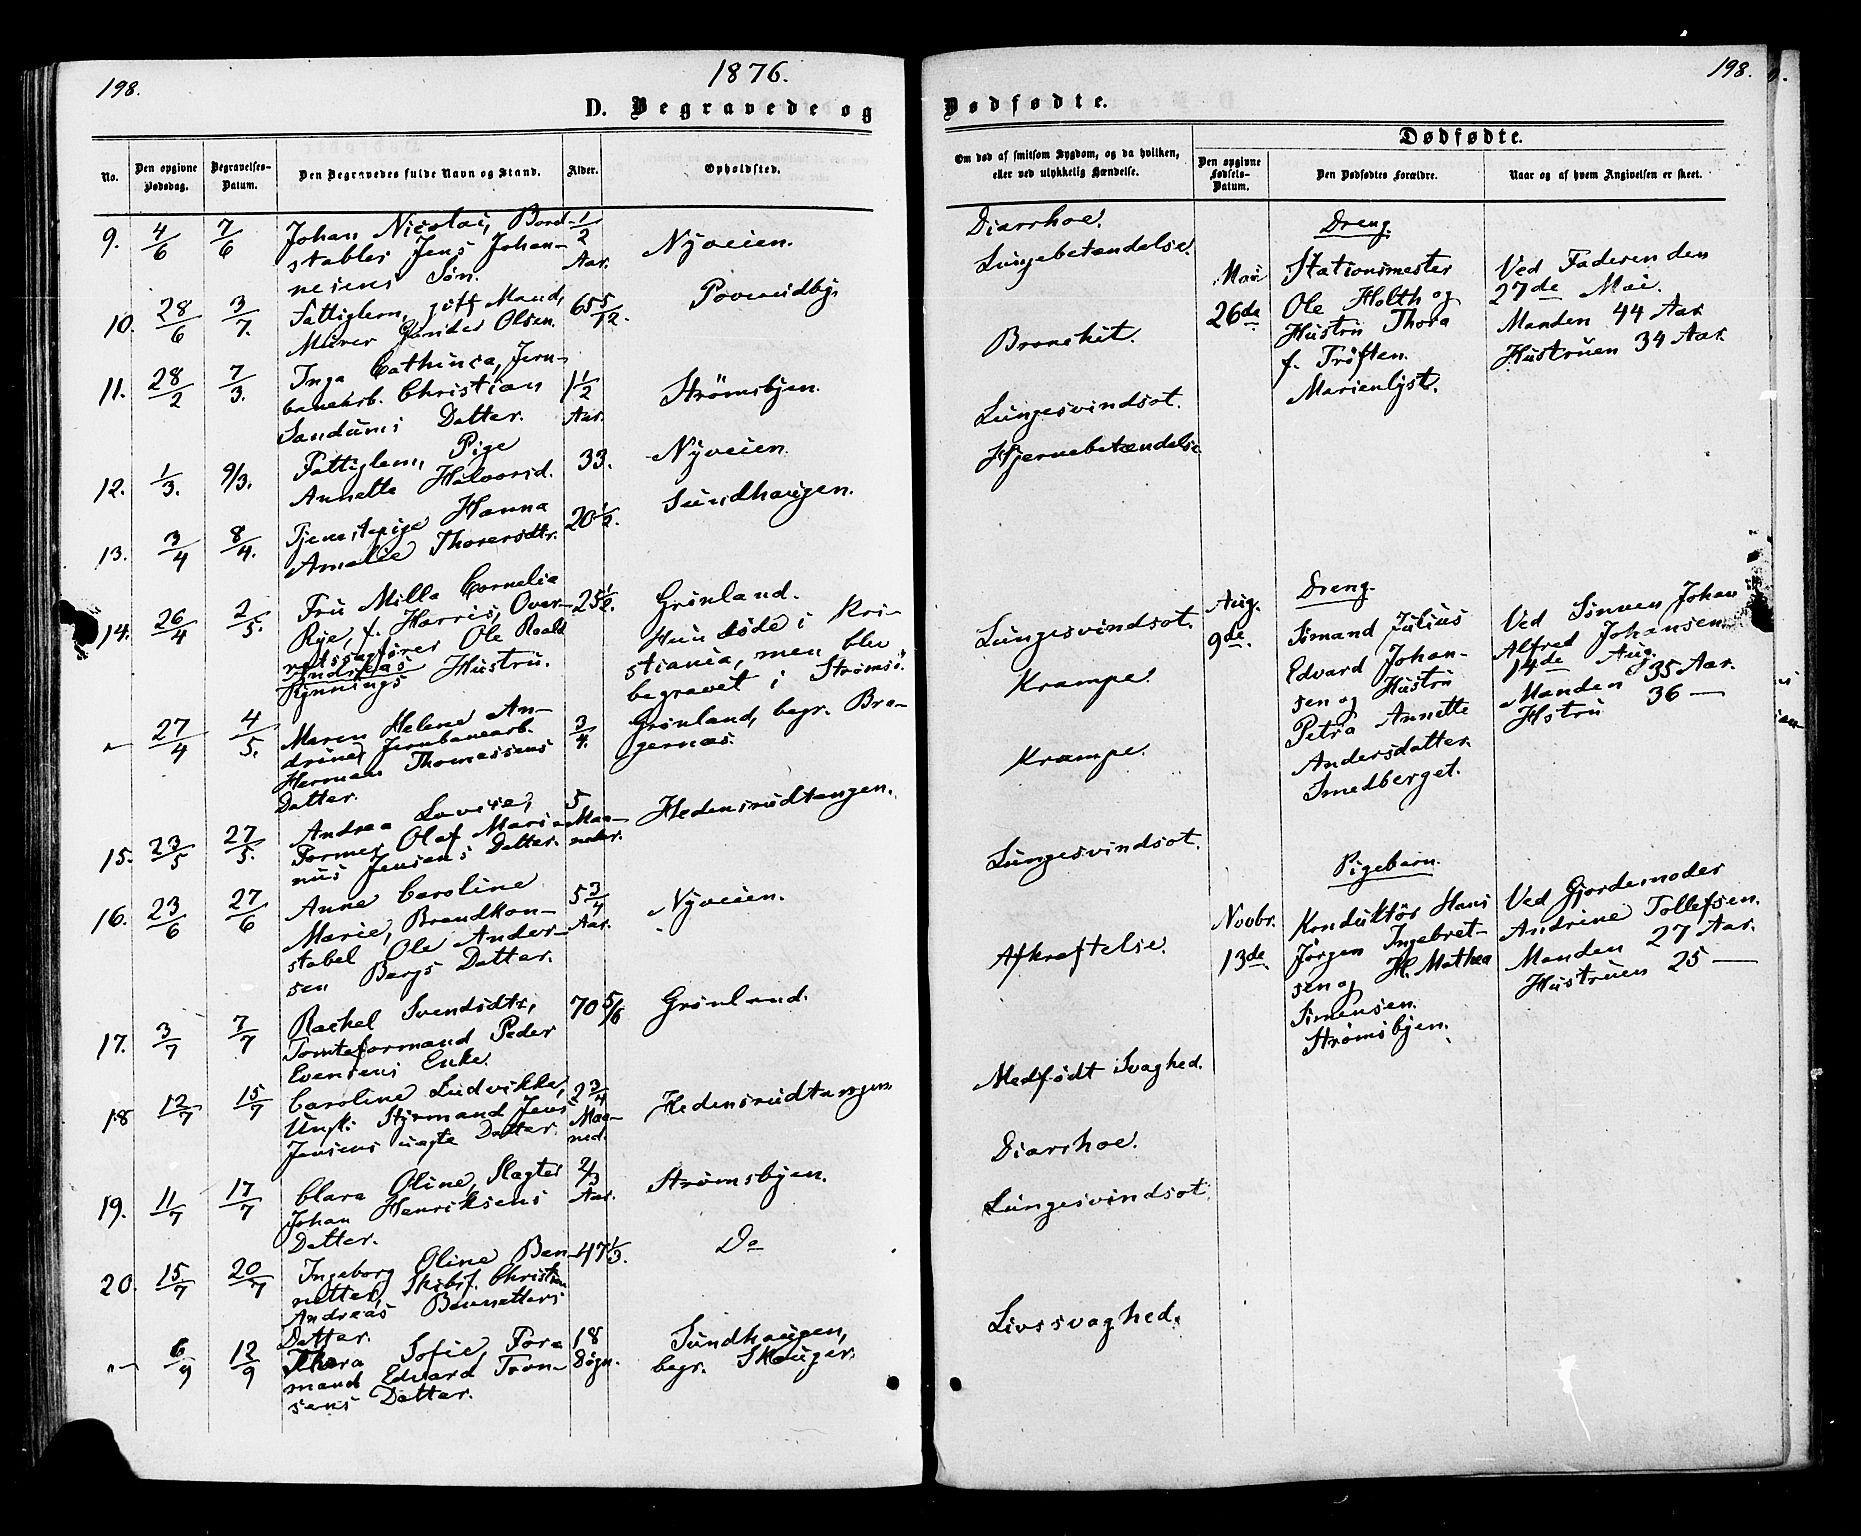 198.
1876.
D. Begravede og
No.
Den opgivne
Dødsdag.
Begravelses-
Datum.
Den Begravedes fulde Navn og Stand.
Alder.
Opholdsted.
9. 4/6 7/6
Johan Nicolai, Bord-
stabler Jens Johan-
nesens Søn.
1/2
Aar.
Nyveien.
10. 28/6 3/7.
Fattiglem, gift Mand,
Murer Olsen.
65 5/12.
11. 28/2 7/3.
Inga Cathinca, Jern-
banearb. Christian
Datter.
1 1/2
Aar.
Strømsbyen.
12. 1/3. 9/3.
Fattiglem, Pige
Annette Halvorsd.
33.
Nyveien.
13. 3/4 8/4.
Tjenestepige Hanna
Amalie Thorersdtr.
20 1/2.
Sundhaugen.
14. 26/4 2/5.
Fru Milla Cornelia
Rye, f. Harris, Over-
retssagfører Ole Roald
Andreas
Rynnings Hustru.
25 1/2.
Grønland.
Hun døde i Kri-
stiania, men blev
begravet i Strømsö.
27/4 4/5.
Maren Helene An-
drine, Jernbanearb.
Herman Thomassens
Datter.
3/4.
Grønland, begr. Bra-
gernæs.
15. 23/5 27/5.
Andrea Lovise,
Former Olaf Mari-
nus Jensens Datter.
5
Maa-
neder.
Hedensrudtangen.
16. 23/6 27/6
Anne Caroline
Marie, Brandkon-
stabel Ole Ander-
sen Bergs Datter.
5 3/4
Aar.
Nyveien.
17. 3/7 7/7
Rachel Svendsdtr,
Tomteformand Peder
Evensens Enke.
70 5/6
Grønland.
18 12/7 15/7
Caroline Ludvikke,
Ungk. Styrmand Jens
Jensens uægte Datter.
2 3/4
Maa-
ned.
Hedensrudtangen.
19. 11/7 17/7
Clara Oline, Slagter
Johan Henriksens
Datter.
2/3
Aar.
Strømsbyen.
20. 15/7 20/7
Ingeborg Oline Ben-
netter, Skibsf. Christian
Andreas Bennetters
Datter.
47 1/3.
Do
6/9 12/9
Thora Sofie, For-
mand Edvard Tron-
sens Datter.
18
Døgn.
Sundhaugen,
begr. Skouger.
198.
Dødfødte.
Om død af smitsom Sygdom, og da hvilken,
eller ved ulykkelig Hændelse.
Dødfødte.
Den opgivne
Fødsels-
Datum.
Den Dødfødtes Forældre.
Naar og af hvem Angivelsen er skeet.
Diarrhoe.
Lungebetændelse.
Bronchit.
Lungesvindsot.
Hjernebetændelse
Lungesvindsot.
Krampe.
Krampe.
Lungesvindsot.
Afkræftelse.
Medfødt Svaghed.
Diarrhoe.
Lungesvindsot.
Livssvaghed.
Mai
26de
Dreng.
Stationsmester
Ole Holth og
Hustru Thora
f. Trøften.
Marienlyst.
Ved Faderen den
27de Mai.
Manden 44 Aar
Hustruen 34 Aar.
Aug.
9de.
Dreng.
Simand Julius
Edvard Johan-
sen og Hustru
Petra Annette
Andersdatter.
Smedberget.
Ved Sønnen Johan
Alfred Johansen
14de Aug.
Manden 35 Aar.
Hstru 36 —
Novbr.
13de
Pigebarn.
Konduktör Hans
Jørgen Ingebret-
sen og H. Mathea
Simensen.
Strømsbyen.
Ved Gjordemoder
Andrine Tollefsen.
Manden 27 Aar.
Hustruen 25 —